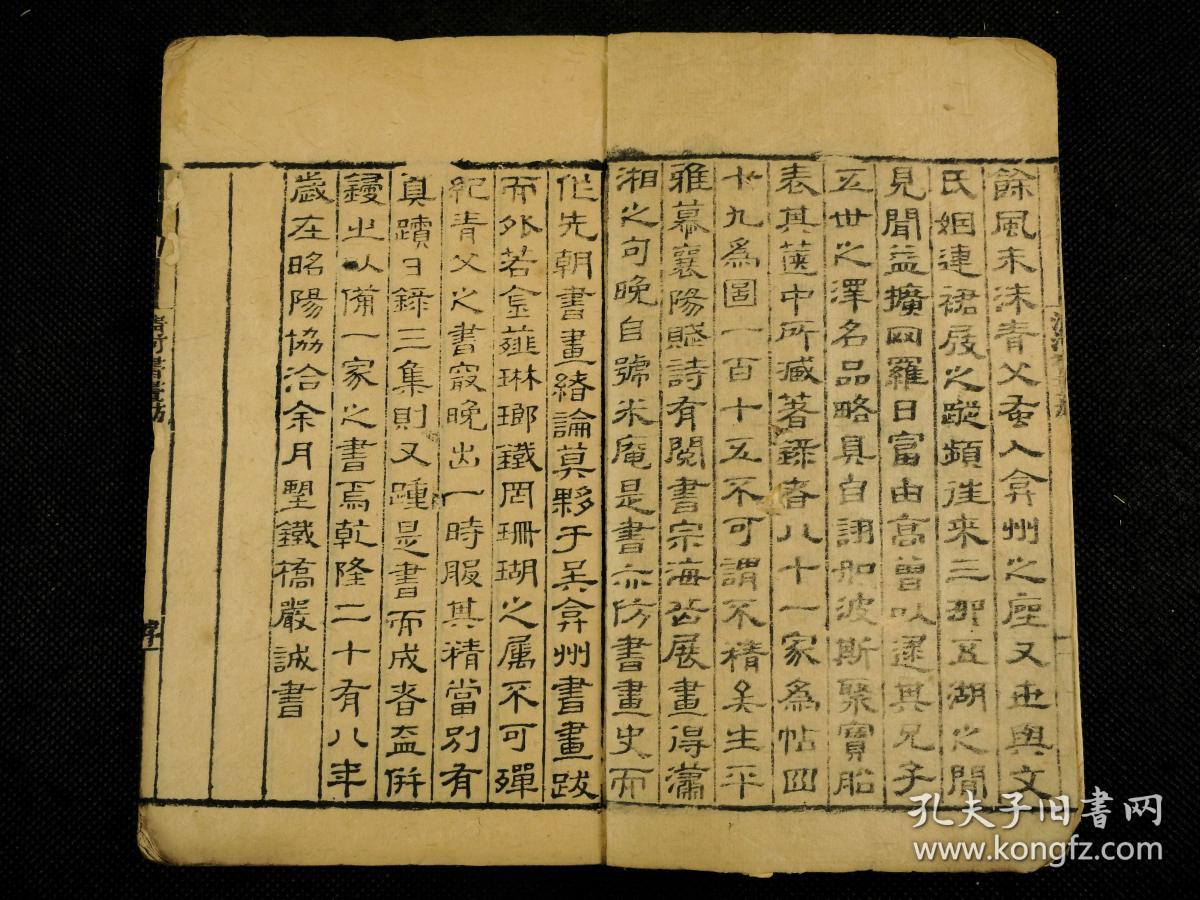 餘風未沫青父蚤入弇州之座又世與文
氏姻連裙屐之蹤頻往來三泖五湖之間
見聞益擴网羅日富由高曾以逮其兄子
五世之澤名品略具自詡如波斯聚寶船
表其篋中所臧著錄者八十一家為帖四
十九為圖一百十五不可謂不精矣生平
雅慕襄陽賦詩有閱書宗海岳展畫得瀟
湘之句晚自號米庵是書亦仿書畫史而
作先朝書畫緒論莫夥于吳弇州書畫跋
而外若金薤琳瑯鐵罔珊瑚之屬不可殫
紀青父之書冣晚出一時服其精當別有
真蹟日錄三集則又踵是書而成者盍併
鋟之以備一家之書焉乾隆二十有八年
歲在昭陽協洽余月墅鐵橋嚴誠書
清河書畫舫
序二
孔夫子旧书网
www.kongfz.com